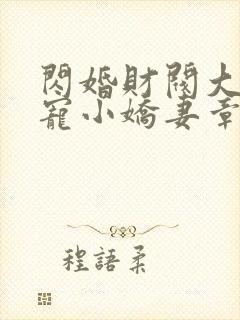 閃婚財閥大
寵小嬌妻章
程語柔